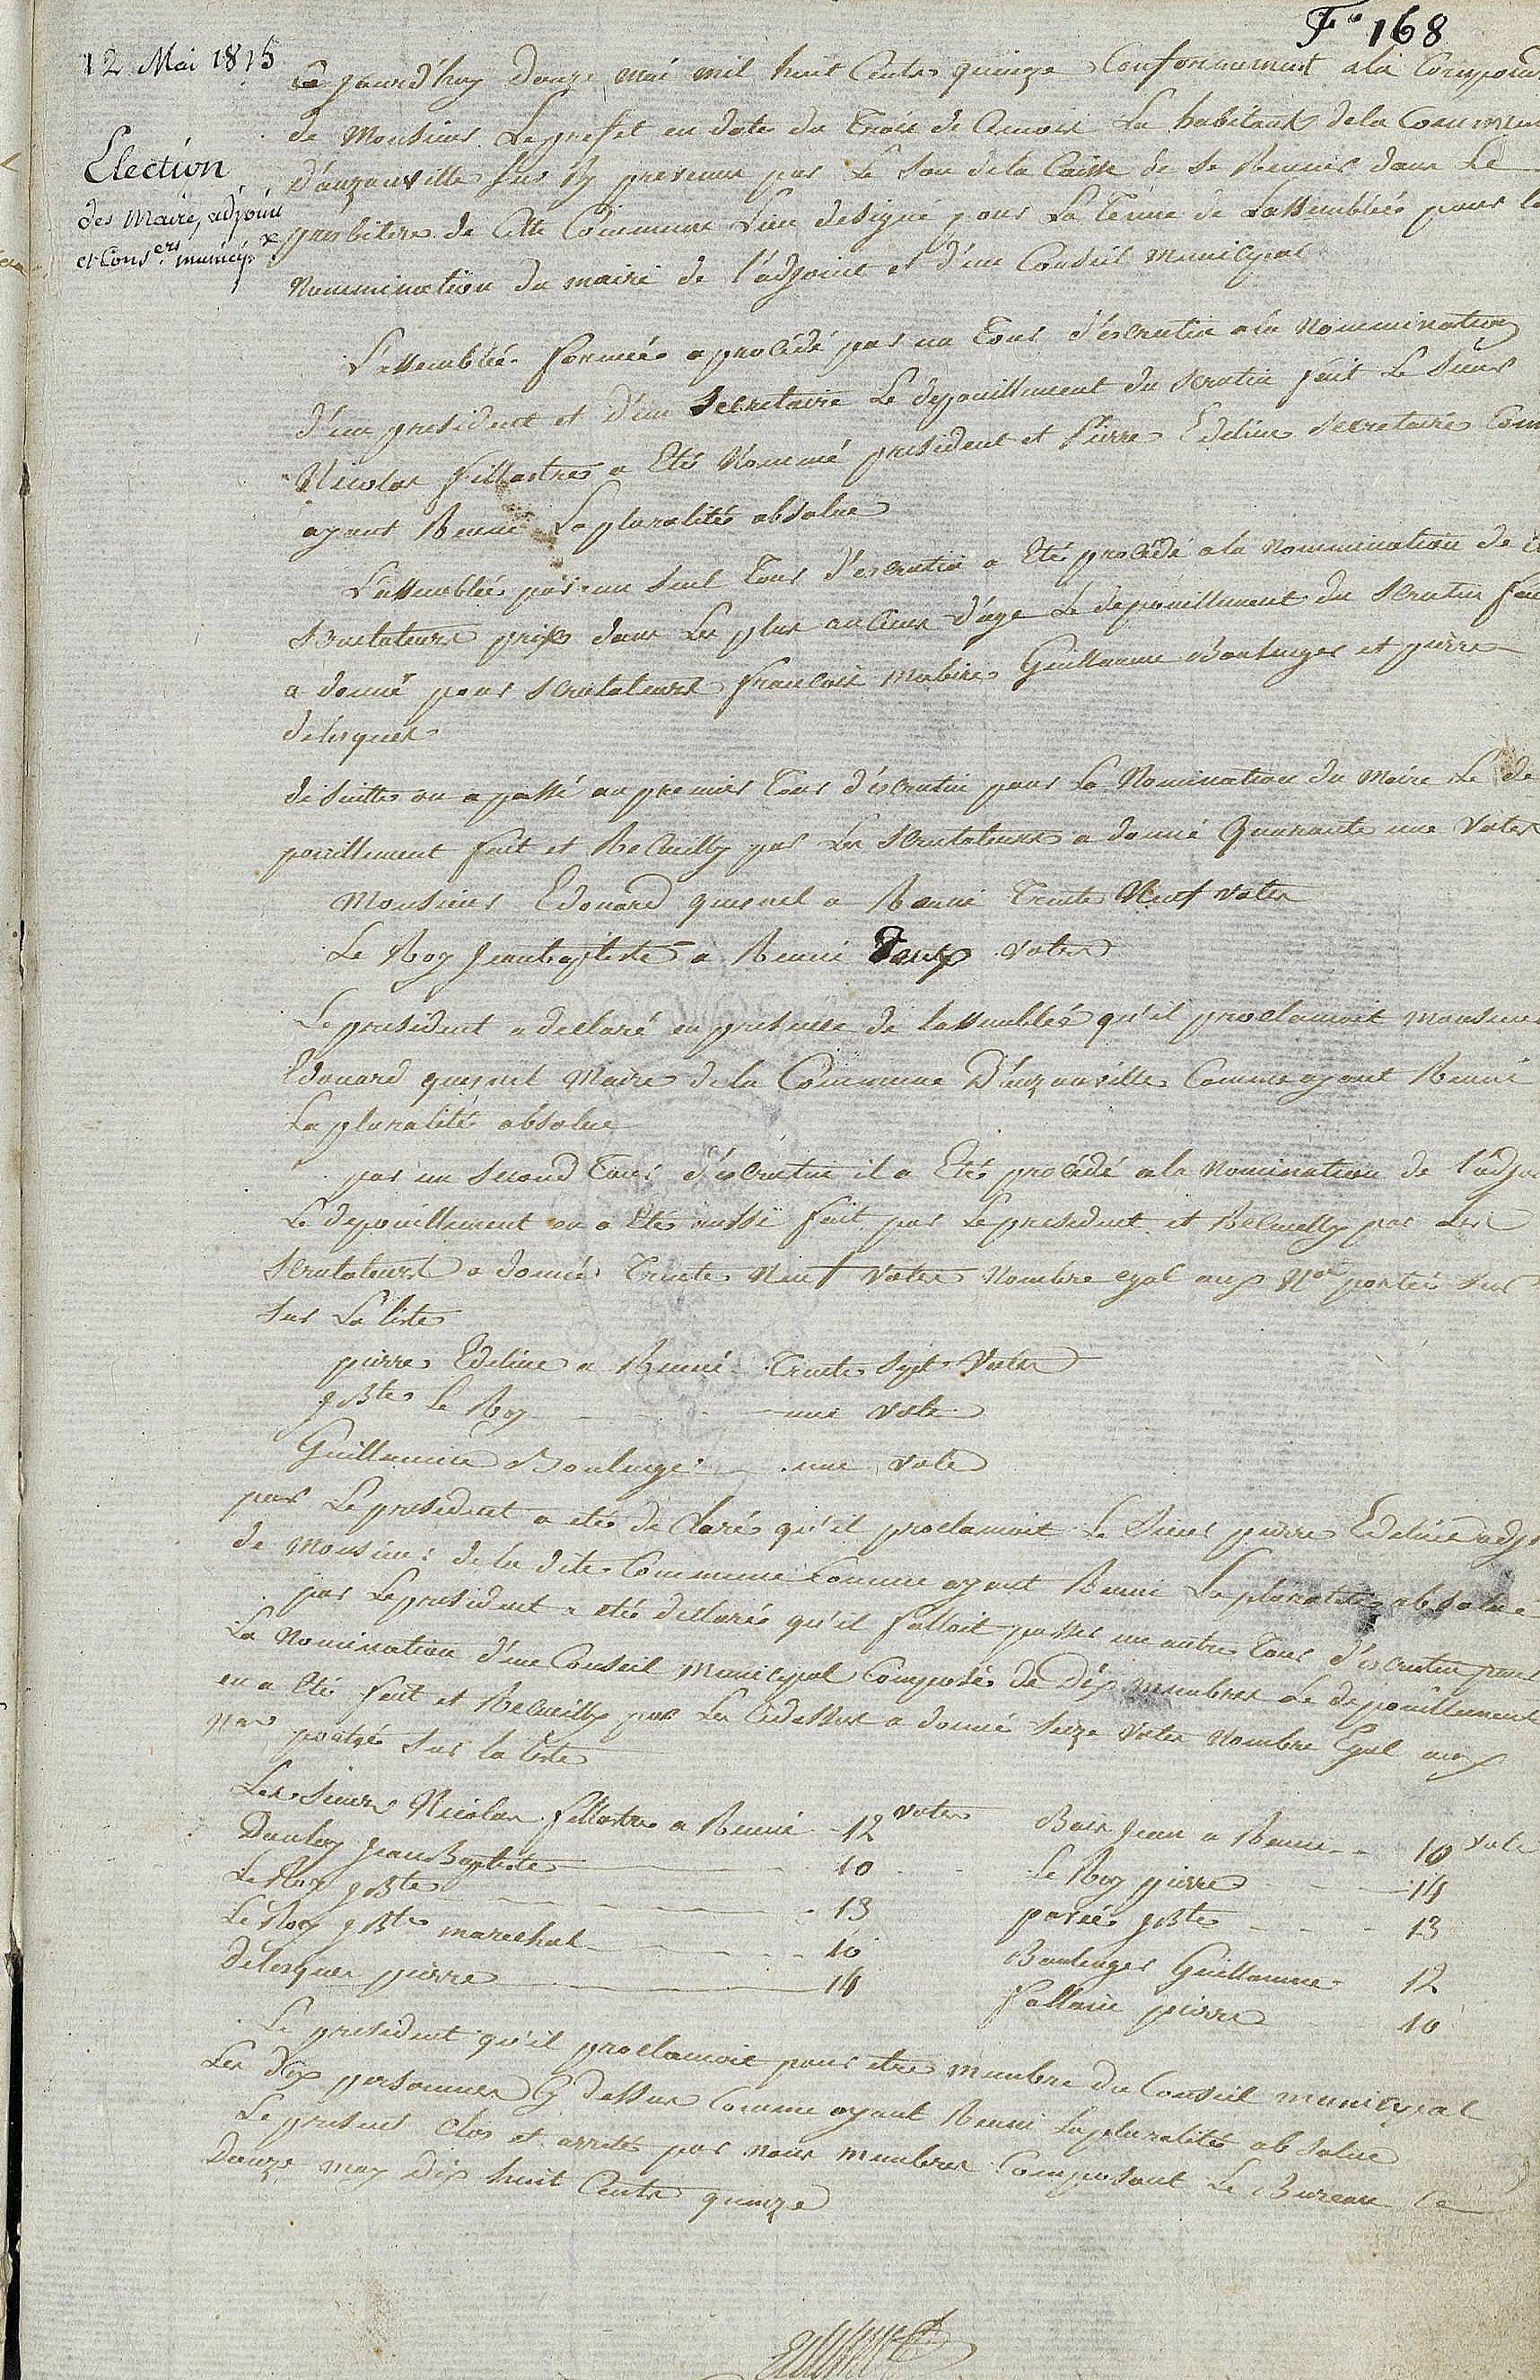 F° 168
12 Mai 1815
Election
des Maire, adjoint
et Cons.ers municip.x
Ce jourd'huy Douze mai mil huit Cents quinze Conformement ala Correpond
de Monsieur Le prefet en date du Trois de Ce mois Les habitants dela Commune
D'auzouville sur Ry prevenus par Le son dela Caisse de se Reunir dans Le
presbitere de Cette Commune Lieu designé pour La Tenue de Lassemblée pour la
Nommination du maire de l'adjoint et d'un Conseil municipal
L'assemblée formée a procédé par un Tour d'escrutin ala Nommination
d'un president et d'un Secretaire Le depouillement du scrutin fait Le Sieur
Nicolas fillastre a Eté Nommé president et Pierre Edeline secretaire Com
ayant Reuni La pluralité absolue
L'assemblée par un seul Tour d'escrutin a Eté procédé ala nommination de
Scrutateurs prix dans Les plus anciens d'age Le depouillement du scrutin fai
a donné pour scrutateurs francois mabire Guillaume Boulenger et pierre
delesques
de suitte on a passé au premier Tour d'escrutin pour La Nomination du Maire Le de
pouillement fait et Recueilly par Les scrutateurs a donné Quarante une Votes
Monsieur Edouard quesnel a Reuni Trente Neuf votes
Le Roy jeanbaptiste a Reuni Deux votes
Le president a declaré en presence de lassemblée qu'il proclamoit monsieur
Edouard quesnel Maire dela Commune D'auzouville Comme ayant Reuni
La pluralité absolue
par un second Tour d'escrutin il a Eté procédé ala nomination de l'adjoi
Le depouillement en a Eté aussi fait par Le president et Recueilly par Les
Scrutateurs a donné Trente Neuf votes Nombre egal aux N.os portés sur
sur La liste
pierre Edeline a Reuni Trente Sept Votes
j Bte Le Roy une vote
Guillaume Boulenger une vote
par Le president a eté declaré qu'il proclamoit Le Sieur pierre Edeline adjo
de Monsieur de la dite Commune Comme ayant Reuni La pluralité absolue
par Le president a eté declaré qu'il falloit passer un autre Tour d'escrutin pour
La Nomination d'un Conseil municipal Composé de Dix membres Le depouillement
en a Eté fait et Recueilly par Les Cidessus a donné Seize Votes Nombre Egal aux
nos portés Sur la liste
Les Sieurs Nicolas fillastre a Reuni 12 votes Bois jean a Reuni 10 vote
Danboy Jean Baptiste 10 Le Roy pierre 14
Le Roy j Bte 13 parié j Bte 13
Le Roy j Bte marechal 10 Boulenger Guillaume 12
delesques pierre 14 fallaise pierre 10
Le president qu'il proclamoit pour etre membre du Conseil municipal
Les Dix personnes Cy dessus Comme ayant Reuni La pluralité absolue
Le present Clos et arreté par nous membres Composant Le Bureau Ce
Douze may Dix huit Cents quinze